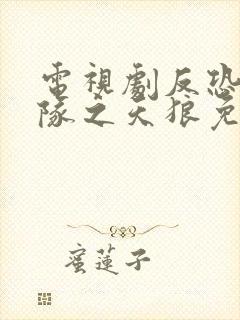 電視劇反恐
隊之天狼免
蜜蓮子